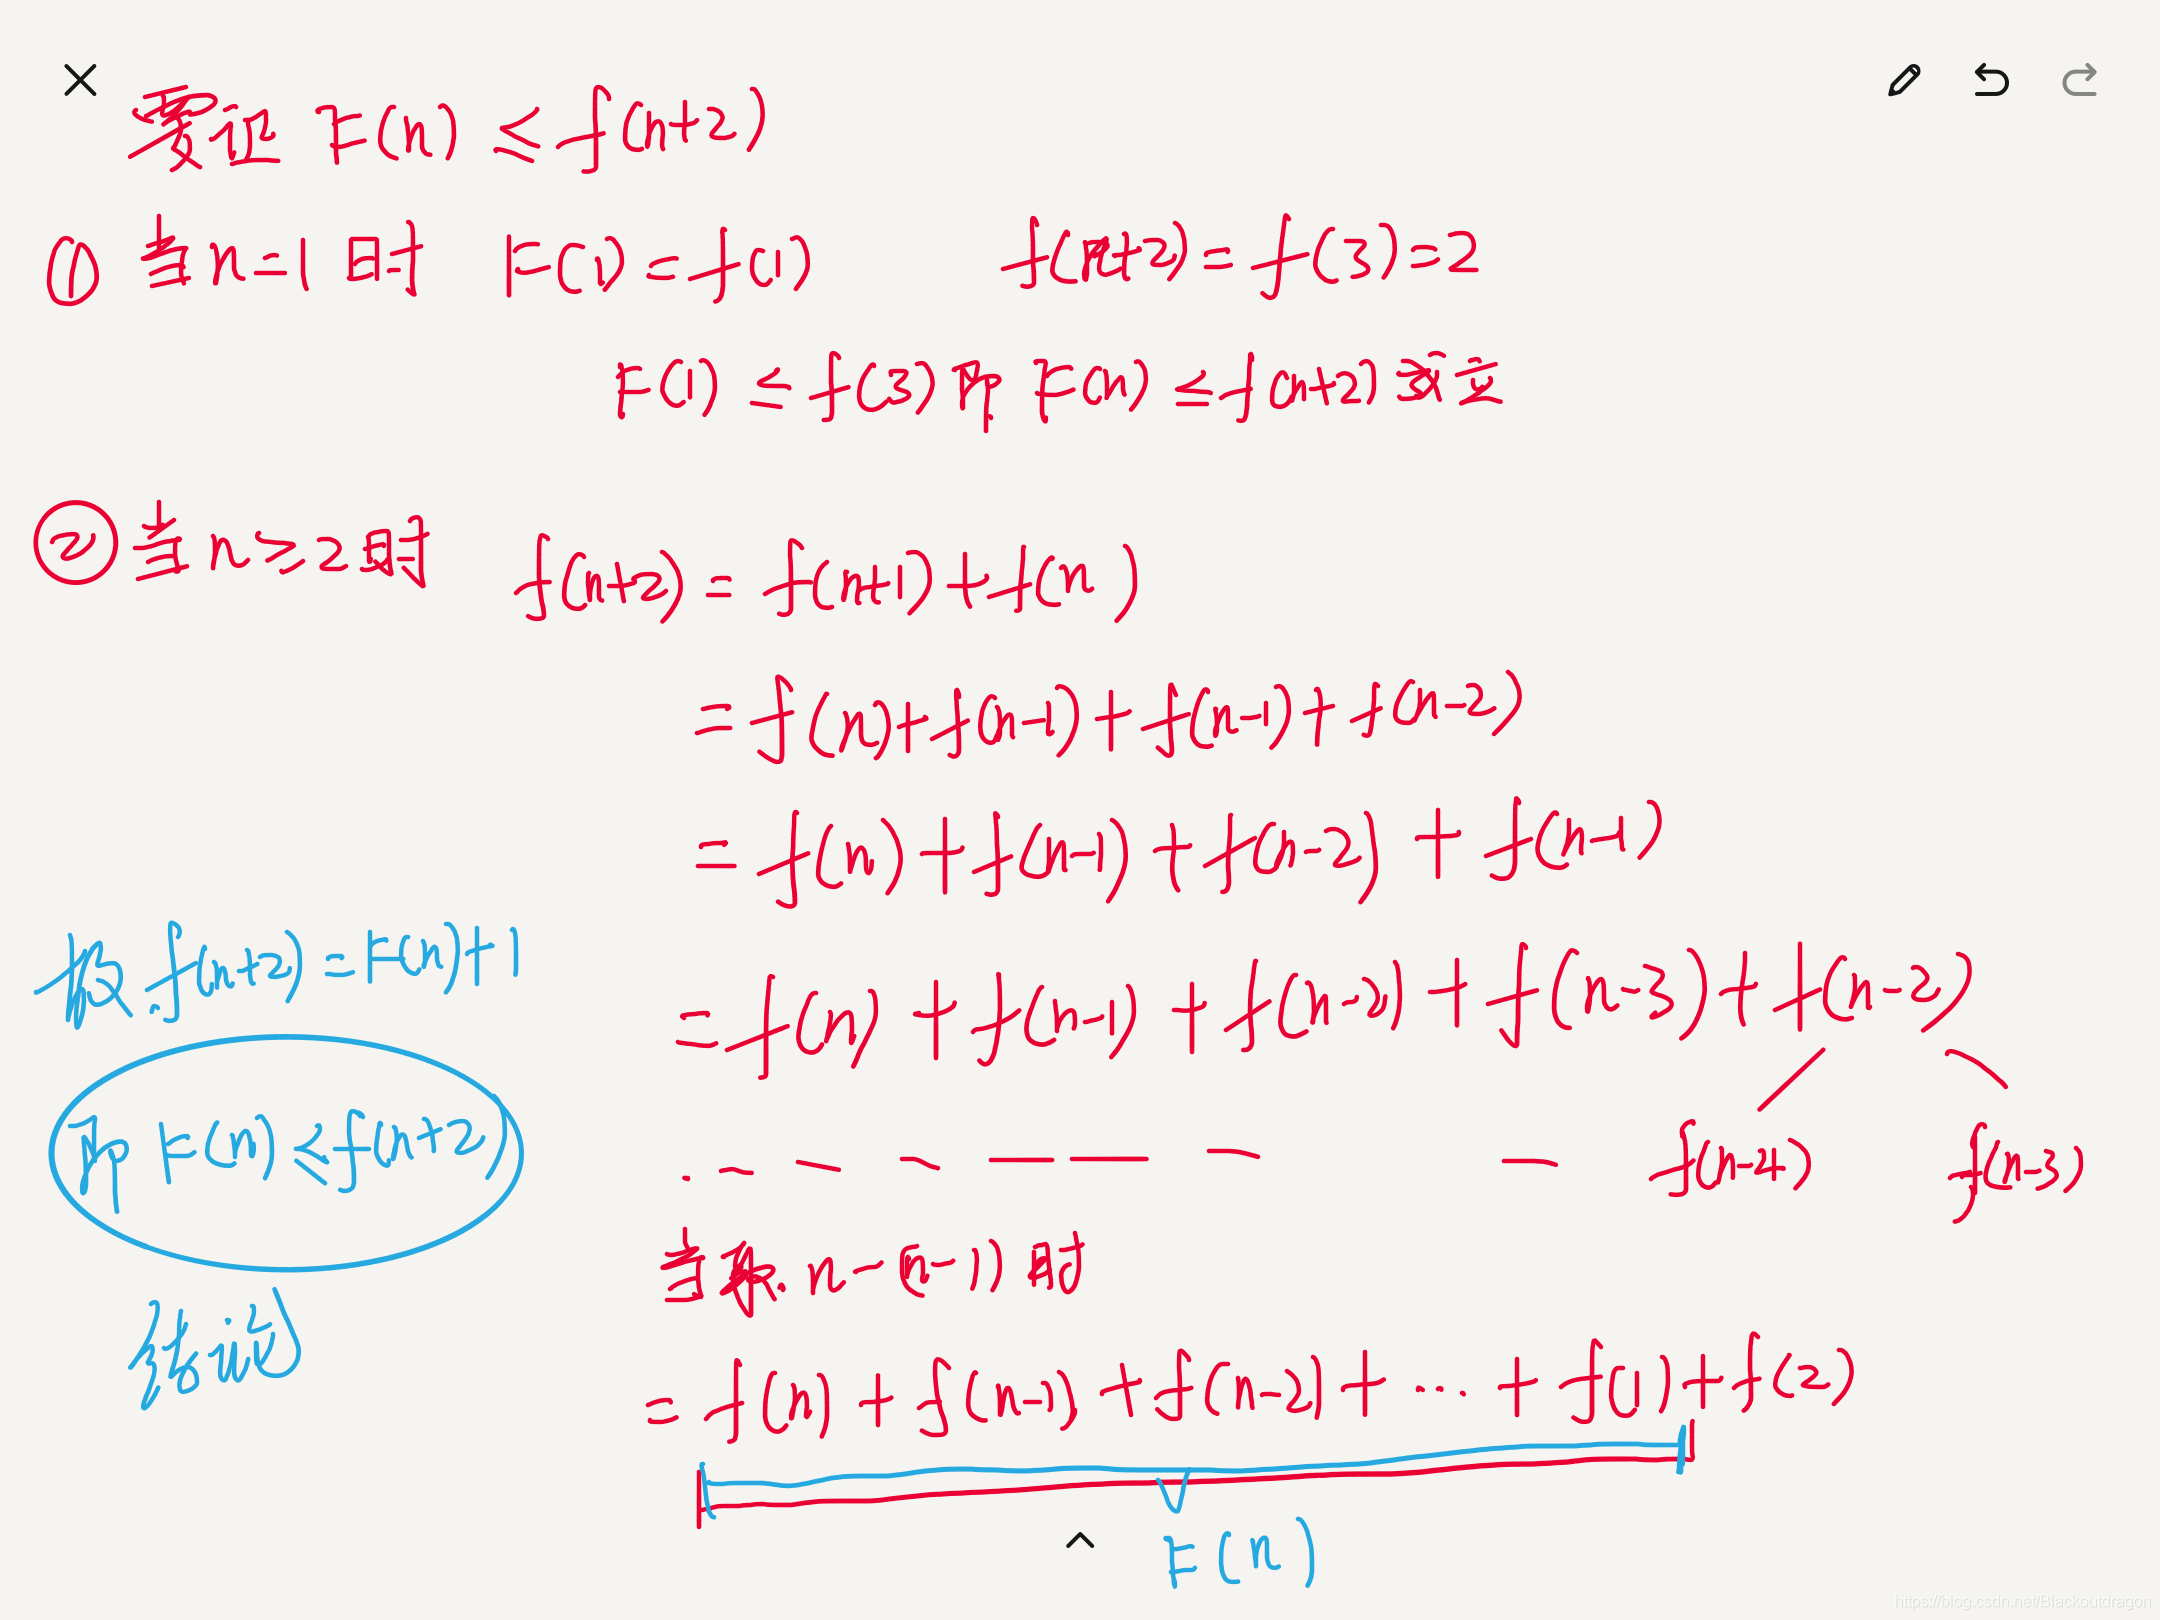 要证 F(n) ≤ f(n+2)
① 当 n=1 时 F(1) = f(1) f(n+2) = f(3) = 2
F(1) ≤ f(3) 即 F(n) ≤ f(n+2) 成立
② 当 n≥2 时 f(n+2) = f(n+1) + f(n)
= f(n) + f(n-1) + f(n-1) + f(n-2)
= f(n) + f(n-1) + f(n-2) + f(n-1)
= f(n) + f(n-1) + f(n-2) + f(n-3) + f(n-2)
f(n-4) f(n-3)
当 n-(n-1) 时
= f(n) + f(n-1) + f(n-2) + ... + f(1) + f(2)
F(n)
故 f(n+2) = F(n)+1
即 F(n) ≤ f(n+2)
结论
https://blog.csdn.net/Blackoutdragon